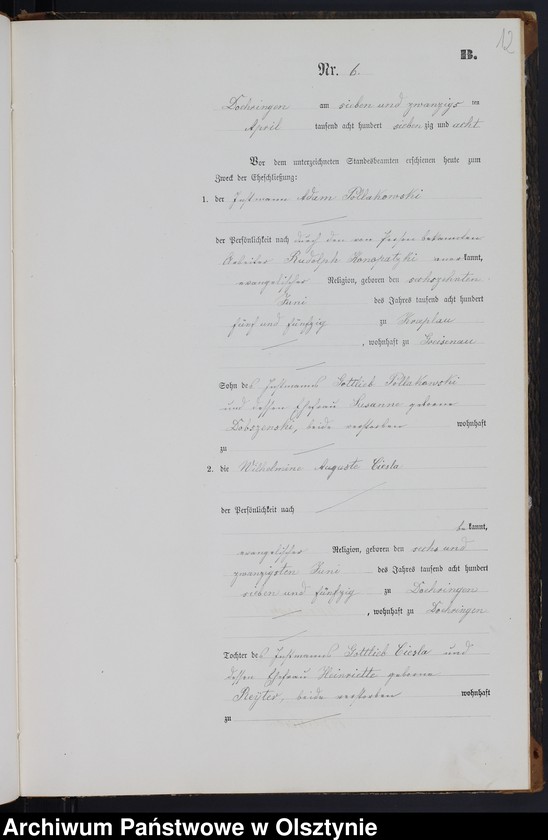 12
B.
Nr. 6.
am sieben und zwanzigs ten
April tausend acht hundert sieben zig und acht
Vor dem unterzeichneten Standesbeamten erschienen heute zum
Zweck der Eheschließung:
1. der Instmann Adam Pollakowski
der Persönlichkeit nach durch den von Person bekannten
Arbeiter Rudolph Konopatzki anerkannt,
evangelischer Religion, geboren den sechszehnten
Juni des Jahres tausend acht hundert
fünf und fünfzig zu
, wohnhaft zu Louisenau
Sohn des Instmanns Gottlieb Pollakowski
und dessen Ehefrau Susanne geborene
Dobszenski, beide verstorben wohnhaft
zu
2. die Wilhelmine Auguste Ciesla
der Persönlichkeit nach
bekannt,
evangelischer Religion, geboren den sechs und
zwanzigsten Juni des Jahres tausend acht hundert
sieben und fünfzig zu Dochringen
, wohnhaft zu Dochringen
Tochter des Instmanns Gottlieb Ciesla und
dessen Ehefrau Heinriette geborene
beide verstorben wohnhaft
zu
Archiwum Państwowe w Olsztynie